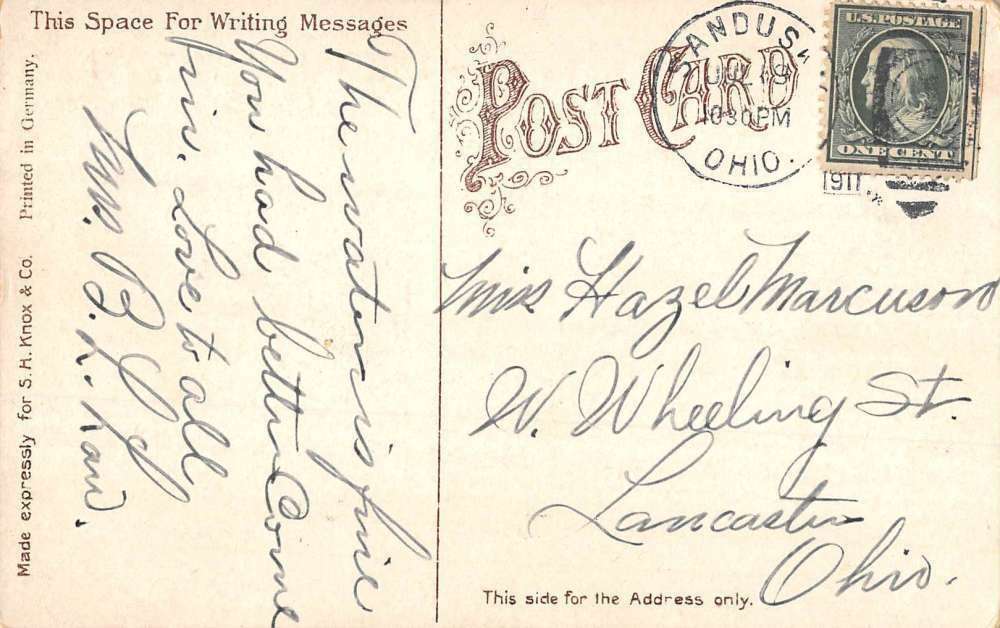 This Space For Writing Messages
Printed in Germany.
Made expressly for S. H. Knox & Co.
The water is fine
You had better Come
in. Love to all
Mrs. B. L.
POST CARD
SANDUSK
19
1030 PM
OHIO.
1911
U.S. POSTAGE
ONE CENT
Miss Hazel Marcuson
W. Wheeling St.
Lancaster
Ohio.
This side for the Address only.